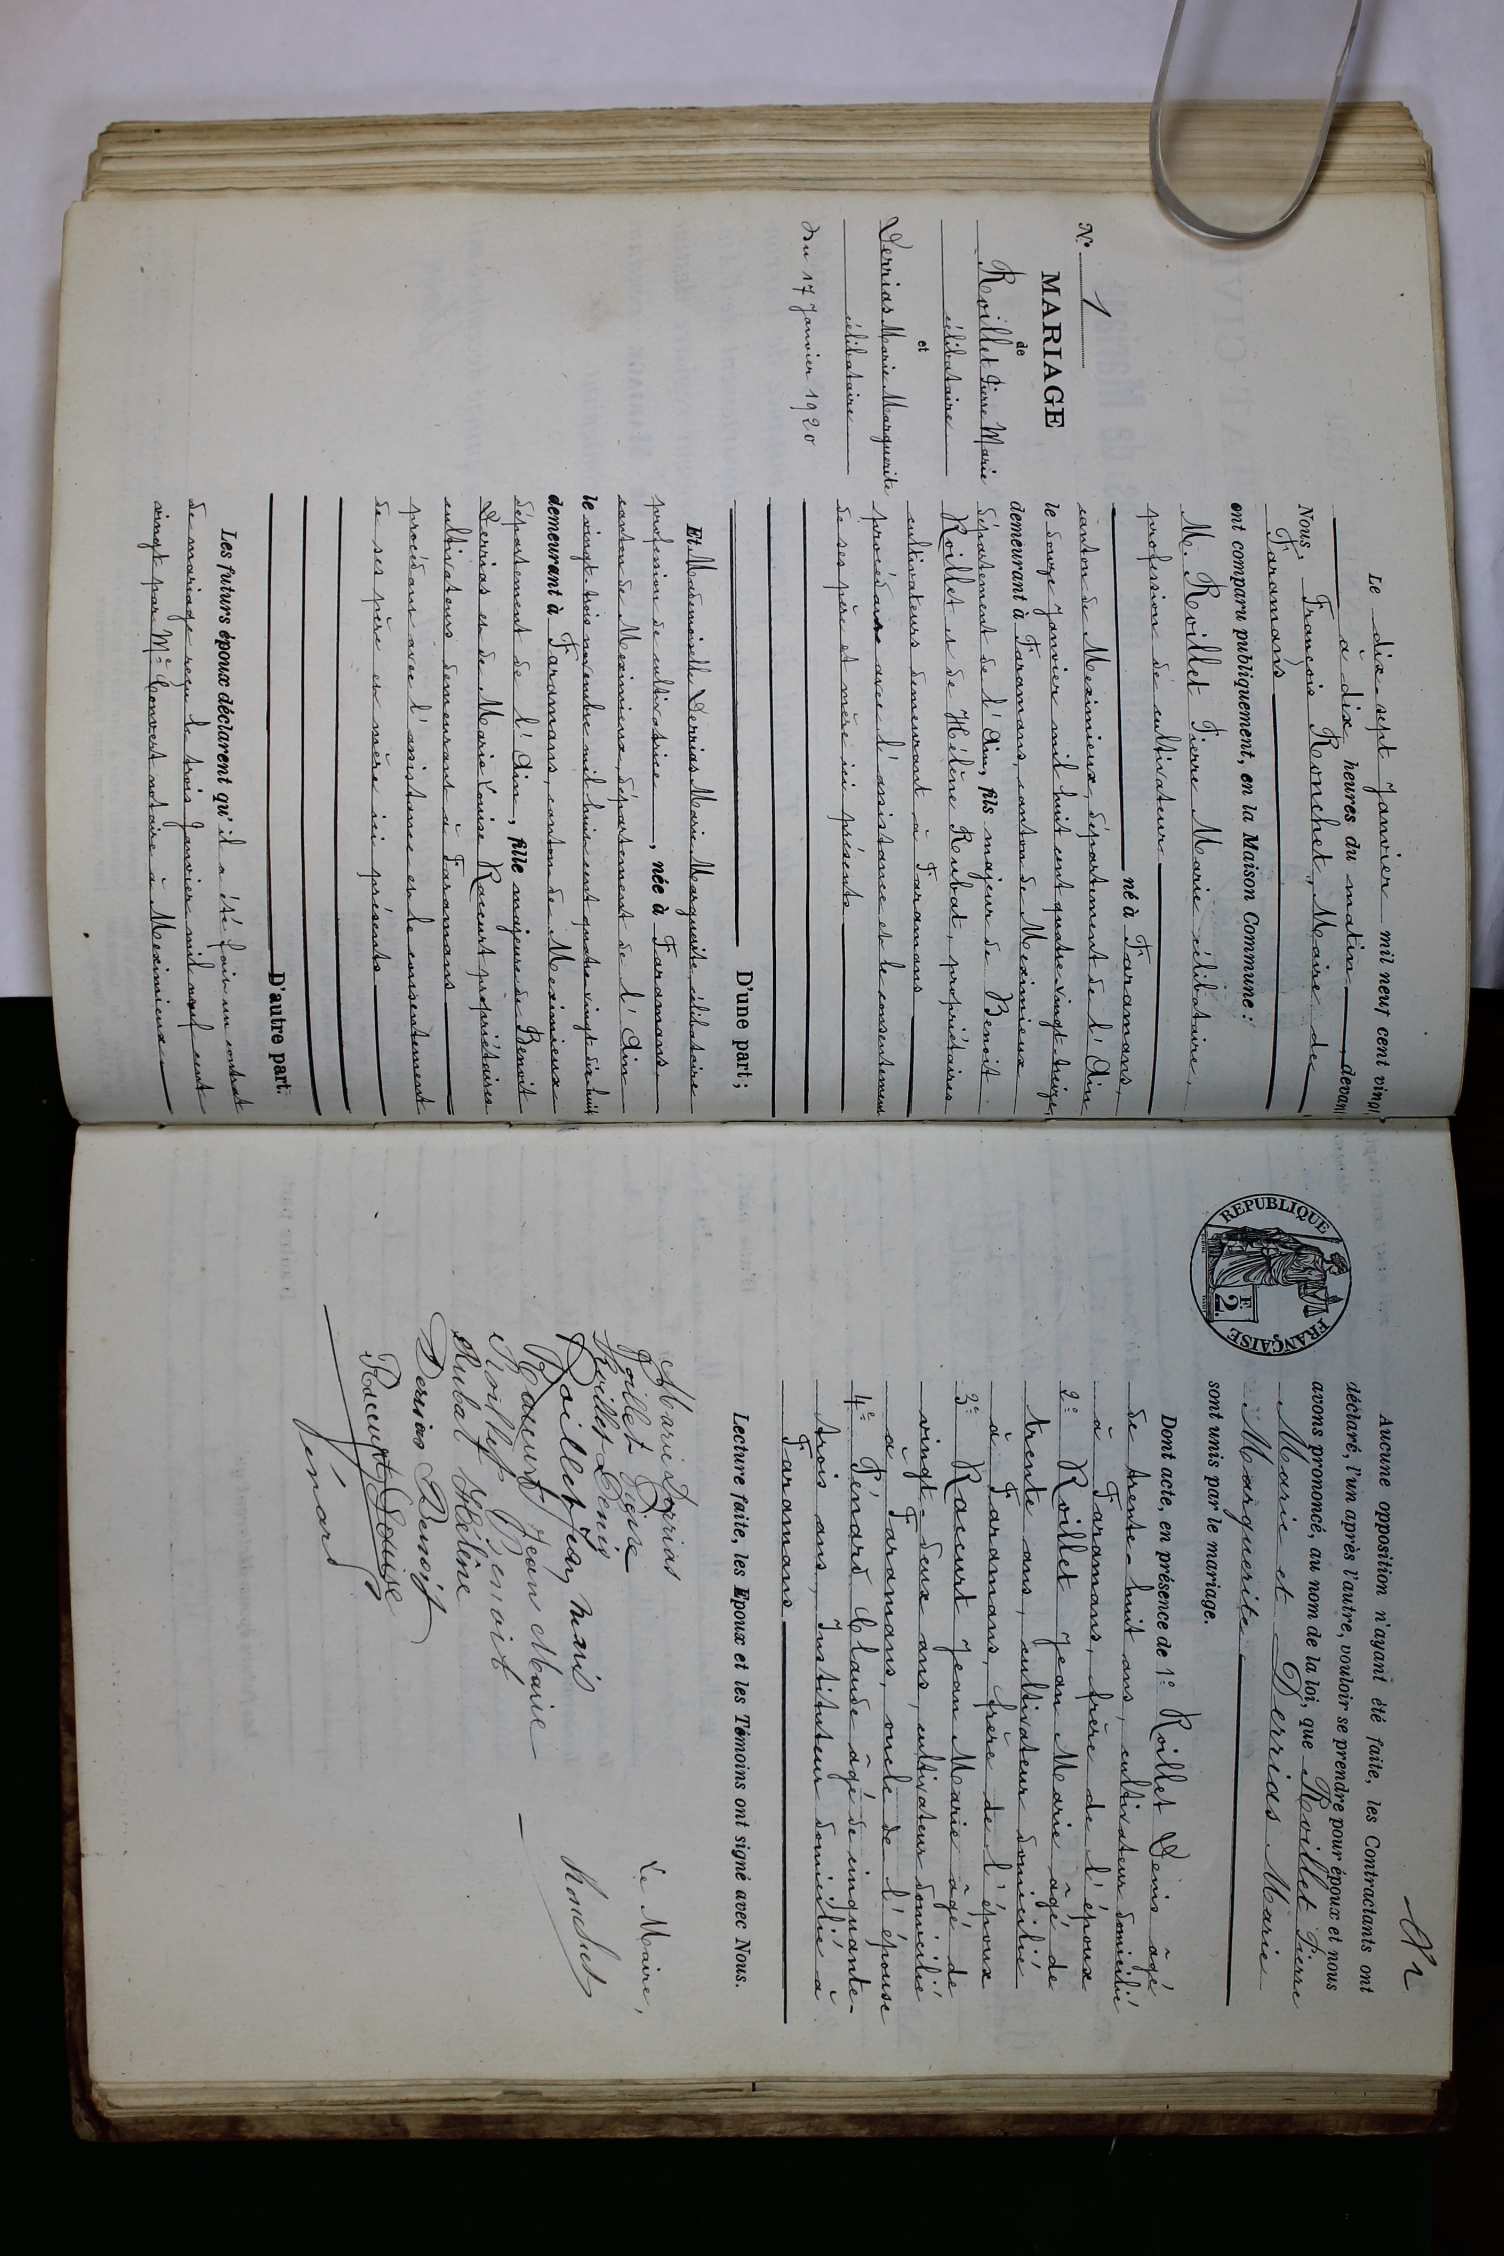 N° 1
MARIAGE
de
Roillet Pierre Marie
célibataire
et
Derrias Marie Marguerite
célibataire
Du 17 Janvier 1920
Le dix-sept Janvier mil neuf cent vingt
à dix heures du matin, devant
Nous, François Ronchet, Maire de
Faramans
ont comparu publiquement, en la Maison Commune :
M. Roillet Pierre Marie célibataire,
profession de cultivateur
né à Faramans,
canton de Meximieux, département de l'Ain
le douze Janvier mil huit cent quatre vingt treize,
demeurant à Faramans, canton de Meximieux
département de l'Ain, fils majeur de Benoit
Roillet et de Hélène Rubat, propriétaires
cultivateurs demeurant à Faramans
procédant avec l'assistance et le consentement
de ses père et mère ici présents
D'une part ;
Et Mademoiselle Derrias Marie Marguerite célibataire
profession de cultivatrice, née à Faramans,
canton de Meximieux, département de l'Ain
le vingt-trois novembre mil huit cent quatre vingt dix huit
demeurant à Faramans, canton de Meximieux
département de l'Ain, fille majeure de Benoit
Derrias et de Marie Louise Racurt propriétaires
cultivateurs demeurant à Faramans
procédant avec l'assistance et le consentement
de ses père et mère ici présents
D'autre part.
Les futurs époux déclarent qu'il a été fait un contrat
de mariage reçu le trois Janvier mil neuf cent
vingt par Me Convert notaire à Meximieux
REPUBLIQUE FRANÇAISE
2 F.
Aucune opposition n'ayant été faite, les Contractants ont
déclaré, l'un après l'autre, vouloir se prendre pour époux et nous
avons prononcé, au nom de la loi, que Roillet Pierre
Marie et Derrias Marie
Marguerite
sont unis par le mariage.
Dont acte, en présence de 1° Roillet Denis âgé
de trente-huit ans, cultivateur domicilié
à Faramans, frère de l'époux
2° Roillet Jean Marie âgé de
trente ans, cultivateur domicilié
à Faramans, frère de l'époux
3° Racurt Jean Marie âgé de
vingt-deux ans, cultivateur domicilié
à Faramans, oncle de l'épouse
4° Pénard Claude âgé de cinquante-
trois ans, Instituteur domicilié à
Faramans
Lecture faite, les Epoux et les Témoins ont signé avec Nous.
Marie Derrias
Roillet Pierre
Roillet Denis
Roillet Jean Marie
Racurt Jean Marie
Roillet Benoit
Rubat Hélène
Derrias Benoit
Racurt Louise
Pénard
Le Maire,
Ronchet